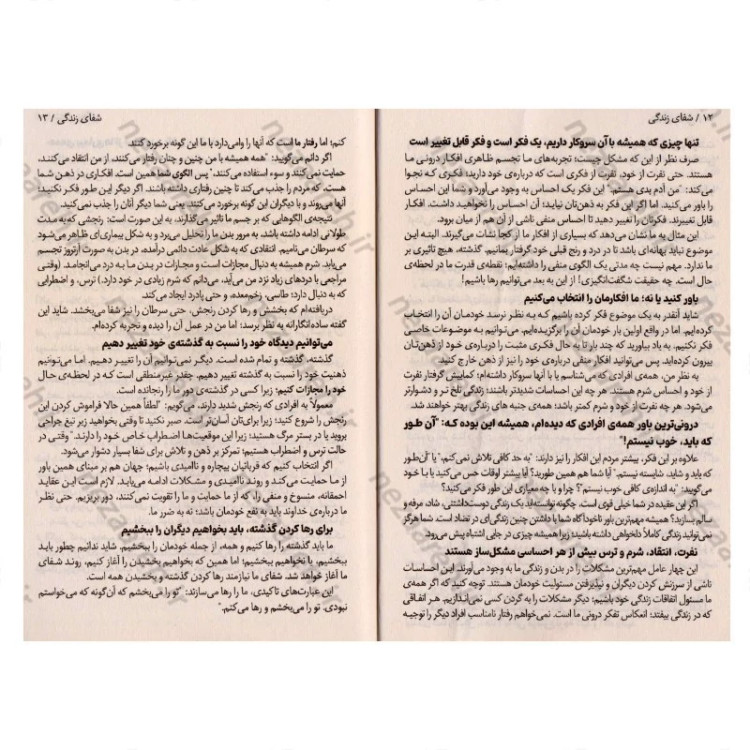 ۱۲ / شفای زندگی
تنها چیزی که همیشه با آن سروکار داریم، یک فکر است و فکر قابل تغییر است
صرف نظر از این که مشکل چیست؛ تجربه‌های ما تجسم ظاهری افکار درونی ما
هستند. حتی نفرت از خود، نفرت از فکری است که درباره‌ی خود دارید؛ فکری که نجوا
می‌کند: "من آدم بدی هستم." این فکر یک احساس به وجود می‌آورد و شما این احساس
را باور می‌کنید. اما اگر این فکر به ذهن‌تان نیاید؛ آن احساس را نخواهید داشت. افکار
قابل تغییرند. فکرتان را تغییر دهید تا احساس منفی ناشی از آن هم از میان برود.
این مثال به ما نشان می‌دهد که بسیاری از افکار ما از کجا نشات می‌گیرند. البته این
موضوع نباید بهانه‌ای باشد تا در درد و رنج قبلی خود گرفتار بمانیم. گذشته، هیچ تاثیری بر
ما ندارد. مهم نیست چه مدتی یک الگوی منفی را داشته‌ایم؛ نقطه‌ی قدرت ما در لحظه‌ی
حال است. چه حقیقت شگفت‌انگیزی! از این به بعد می‌توانیم رها باشیم!
باور کنید یا نه: ما افکارمان را انتخاب می‌کنیم
شاید آنقدر به یک موضوع فکر کرده باشیم که به نظر نرسد خودمان آن را انتخاب
کرده‌ایم. اما در واقع اولین بار خودمان آن را برگزیده‌ایم. می‌توانیم به موضوعات خاصی
فکر نکنیم. به یاد بیاورید که چند بار تا به حال فکری مثبت را درباره‌ی خود از ذهن‌تان
بیرون کرده‌اید. پس می‌توانید افکار منفی درباره‌ی خود را نیز از ذهن خارج کنید.
به نظر من، همه‌ی افرادی که می‌شناسم یا با آنها سروکار داشته‌ام؛ کمابیش گرفتار نفرت
از خود و احساس شرم هستند. هر چه این احساسات شدیدتر باشند؛ زندگی تلخ تر و دشوارتر
می‌شود. هر چه نفرت از خود و شرم کمتر باشد؛ همه‌ی جنبه های زندگی بهتر خواهند شد.
درونی‌ترین باور همه‌ی افرادی که دیده‌ام، همیشه این بوده که: "آن طور
که باید، خوب نیستم!"
علاوه بر این فکر، بیشتر مردم این افکار را نیز دارند: "به حد کافی تلاش نمی‌کنم." یا "آن‌طور
که باید و شاید، شایسته نیستم." آیا شما هم همین طورید؟ آیا بیشتر اوقات حس می‌کنید یا با خود
می‌گویید: "به اندازه‌ی کافی خوب نیستم."؟ چرا و با چه معیاری این طور فکر می‌کنید؟
اگر این عقیده در شما خیلی قوی است. چگونه توانسته‌اید یک زندگی دوست‌داشتنی، شاد، مرفه و
سالم بسازید؟ همیشه مهم‌ترین باور ناخودآگاه شما با داشتن چنین زندگی‌ای در تضاد است. شما هرگز
نمی‌توانید زندگی کاملاً دلخواهی داشته باشید؛ زیرا همیشه چیزی در جایی اشتباه پیش می‌رود.
نفرت، انتقاد، شرم و ترس بیش از هر احساسی مشکل‌ساز هستند
این چهار عامل مهم‌ترین مشکلات را در بدن و زندگی ما به وجود می‌آورند. این احساسات
ناشی از سرزنش کردن دیگران و نپذیرفتن مسئولیت خودمان هستند. توجه کنید که اگر همه‌ی
ما مسئول اتفاقات زندگی خود باشیم؛ دیگر مشکلات را به گردن کسی نمی‌اندازیم. هر اتفاقی
که در زندگی بیفتد؛ انعکاس تفکر درونی ما است. نمی‌خواهم رفتار نامناسب افراد دیگر را توجیه
شفای زندگی / ۱۳
کنم؛ اما رفتار ما است که آنها را وامی‌دارد با ما این گونه برخورد کنند.
اگر دائم می‌گویید: "همه همیشه با من چنین و چنان رفتار می‌کنند، از من انتقاد می‌کنند،
حمایت نمی کنند و سوء استفاده می‌کنند." پس الگوی شما همین است. افکاری در ذهن شما
هست، که مردم را جذب می‌کند تا چنین رفتاری داشته باشند. اگر دیگر این طور فکر نکنید؛
آنها می‌روند و با دیگران این گونه برخورد می‌کنند. یعنی شما دیگر آنان را جذب نمی‌کنید.
نتیجه‌ی الگوهایی که بر جسم ما تاثیر می‌گذارند، به این صورت است: رنجشی که به مدت
طولانی ادامه داشته باشد، به مرور بدن ما را تحلیل می‌برد و به شکل بیماری‌ای ظاهر می‌شود
که سرطان می‌نامیم. انتقادی که به شکل عادت دائمی درآمده، در بدن به صورت آرتروز تجسم
می‌یابد. شرم همیشه به دنبال مجازات است و مجازات در بدن ما به درد می‌انجامد. (وقتی
مراجعی با دردهای زیاد نزد من می‌آید، می‌دانم که شرم زیادی در خود دارد.) ترس، و اضطرابی
که به دنبال دارد؛ طاسی، زخم‌معده، و حتی پادرد ایجاد می‌کند.
دریافته‌ام که بخشش و رها کردن رنجش، حتی سرطان را نیز شفا می‌بخشد. شاید این
گفته ساده‌انگارانه به نظر برسد؛ اما من در عمل آن را دیده و تجربه کرده‌ام.
می‌توانیم دیدگاه خود را نسبت به گذشته‌ی خود تغییر دهیم
گذشته، گذشته و تمام شده است. دیگر نمی‌توانیم آن را تغییر دهیم. اما می‌توانیم
ذهنیت خود را نسبت به گذشته تغییر دهیم. چقدر غیرمنطقی است که در لحظه‌ی حال
خود را مجازات کنیم؛ زیرا کسی در گذشته‌ی دور ما را رنجانده است.
معمولاً به افرادی که رنجش شدید دارند، می‌گویم: "لطفاً همین حالا فراموش کردن این
رنجش را شروع کنید؛ زیرا برای‌تان آسان‌تر است. صبر نکنید تا وقتی بخواهید زیر تیغ جراحی
بروید یا در بستر مرگ هستید؛ زیرا این موقعیت‌ها اضطراب خاص خود را دارند." وقتی در
حالت ترس و اضطراب هستیم؛ تمرکز بر ذهن و تلاش برای شفا بسیار دشوار می‌شود.
اگر انتخاب کنیم که قربانیان بیچاره و ناامیدی باشیم؛ جهان هم بر مبنای همین باور
از ما حمایت می‌کند و روند ناامیدی و مشکلات ادامه می‌یابد. لازم است این عقاید
احمقانه، منسوخ و منفی را، که از ما حمایت و ما را تقویت نمی کنند، دور بریزیم. حتی نظر
ما درباره‌ی خداوند باید به نفع خودمان باشد؛ نه به ضرر ما.
برای رها کردن گذشته، باید بخواهیم دیگران را ببخشیم
ما باید گذشته را رها کنیم و همه، از جمله خودمان را ببخشیم. شاید ندانیم چطور باید
ببخشیم، یا نخواهیم ببخشیم؛ اما همین که بخواهیم بخشیدن را آغاز کنیم، روند شفای
ما آغاز خواهد شد. شفای ما نیازمند رها کردن گذشته و بخشیدن همه است.
این عبارت‌های تاکیدی، ما را رها می‌سازند: "تو را می‌بخشم که آن‌گونه که می‌خواستم
نبودی. تو را می‌بخشم و رها می‌کنم."